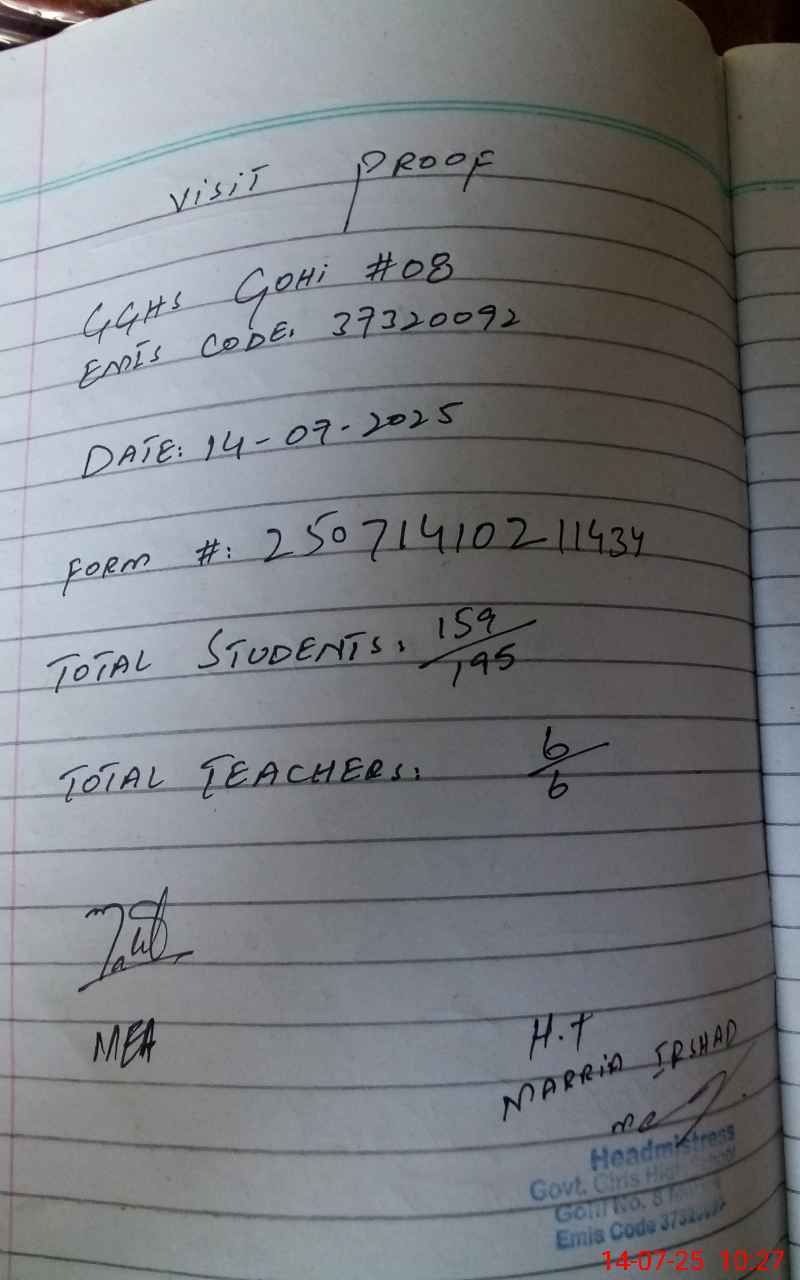 VISIT PROOF
GGHS GOHI #08
EMIS CODE. 37320092
DATE: 14-07-2025
FORM #: 25071410211434
TOTAL STUDENTS: 159/195
TOTAL TEACHERS: 6/6
MEA
H.T
MARRIA IRSHAD
Headmistress
Govt. Girls High
Gohi No. 8
Emis Code 37320092
14-07-25 10:27